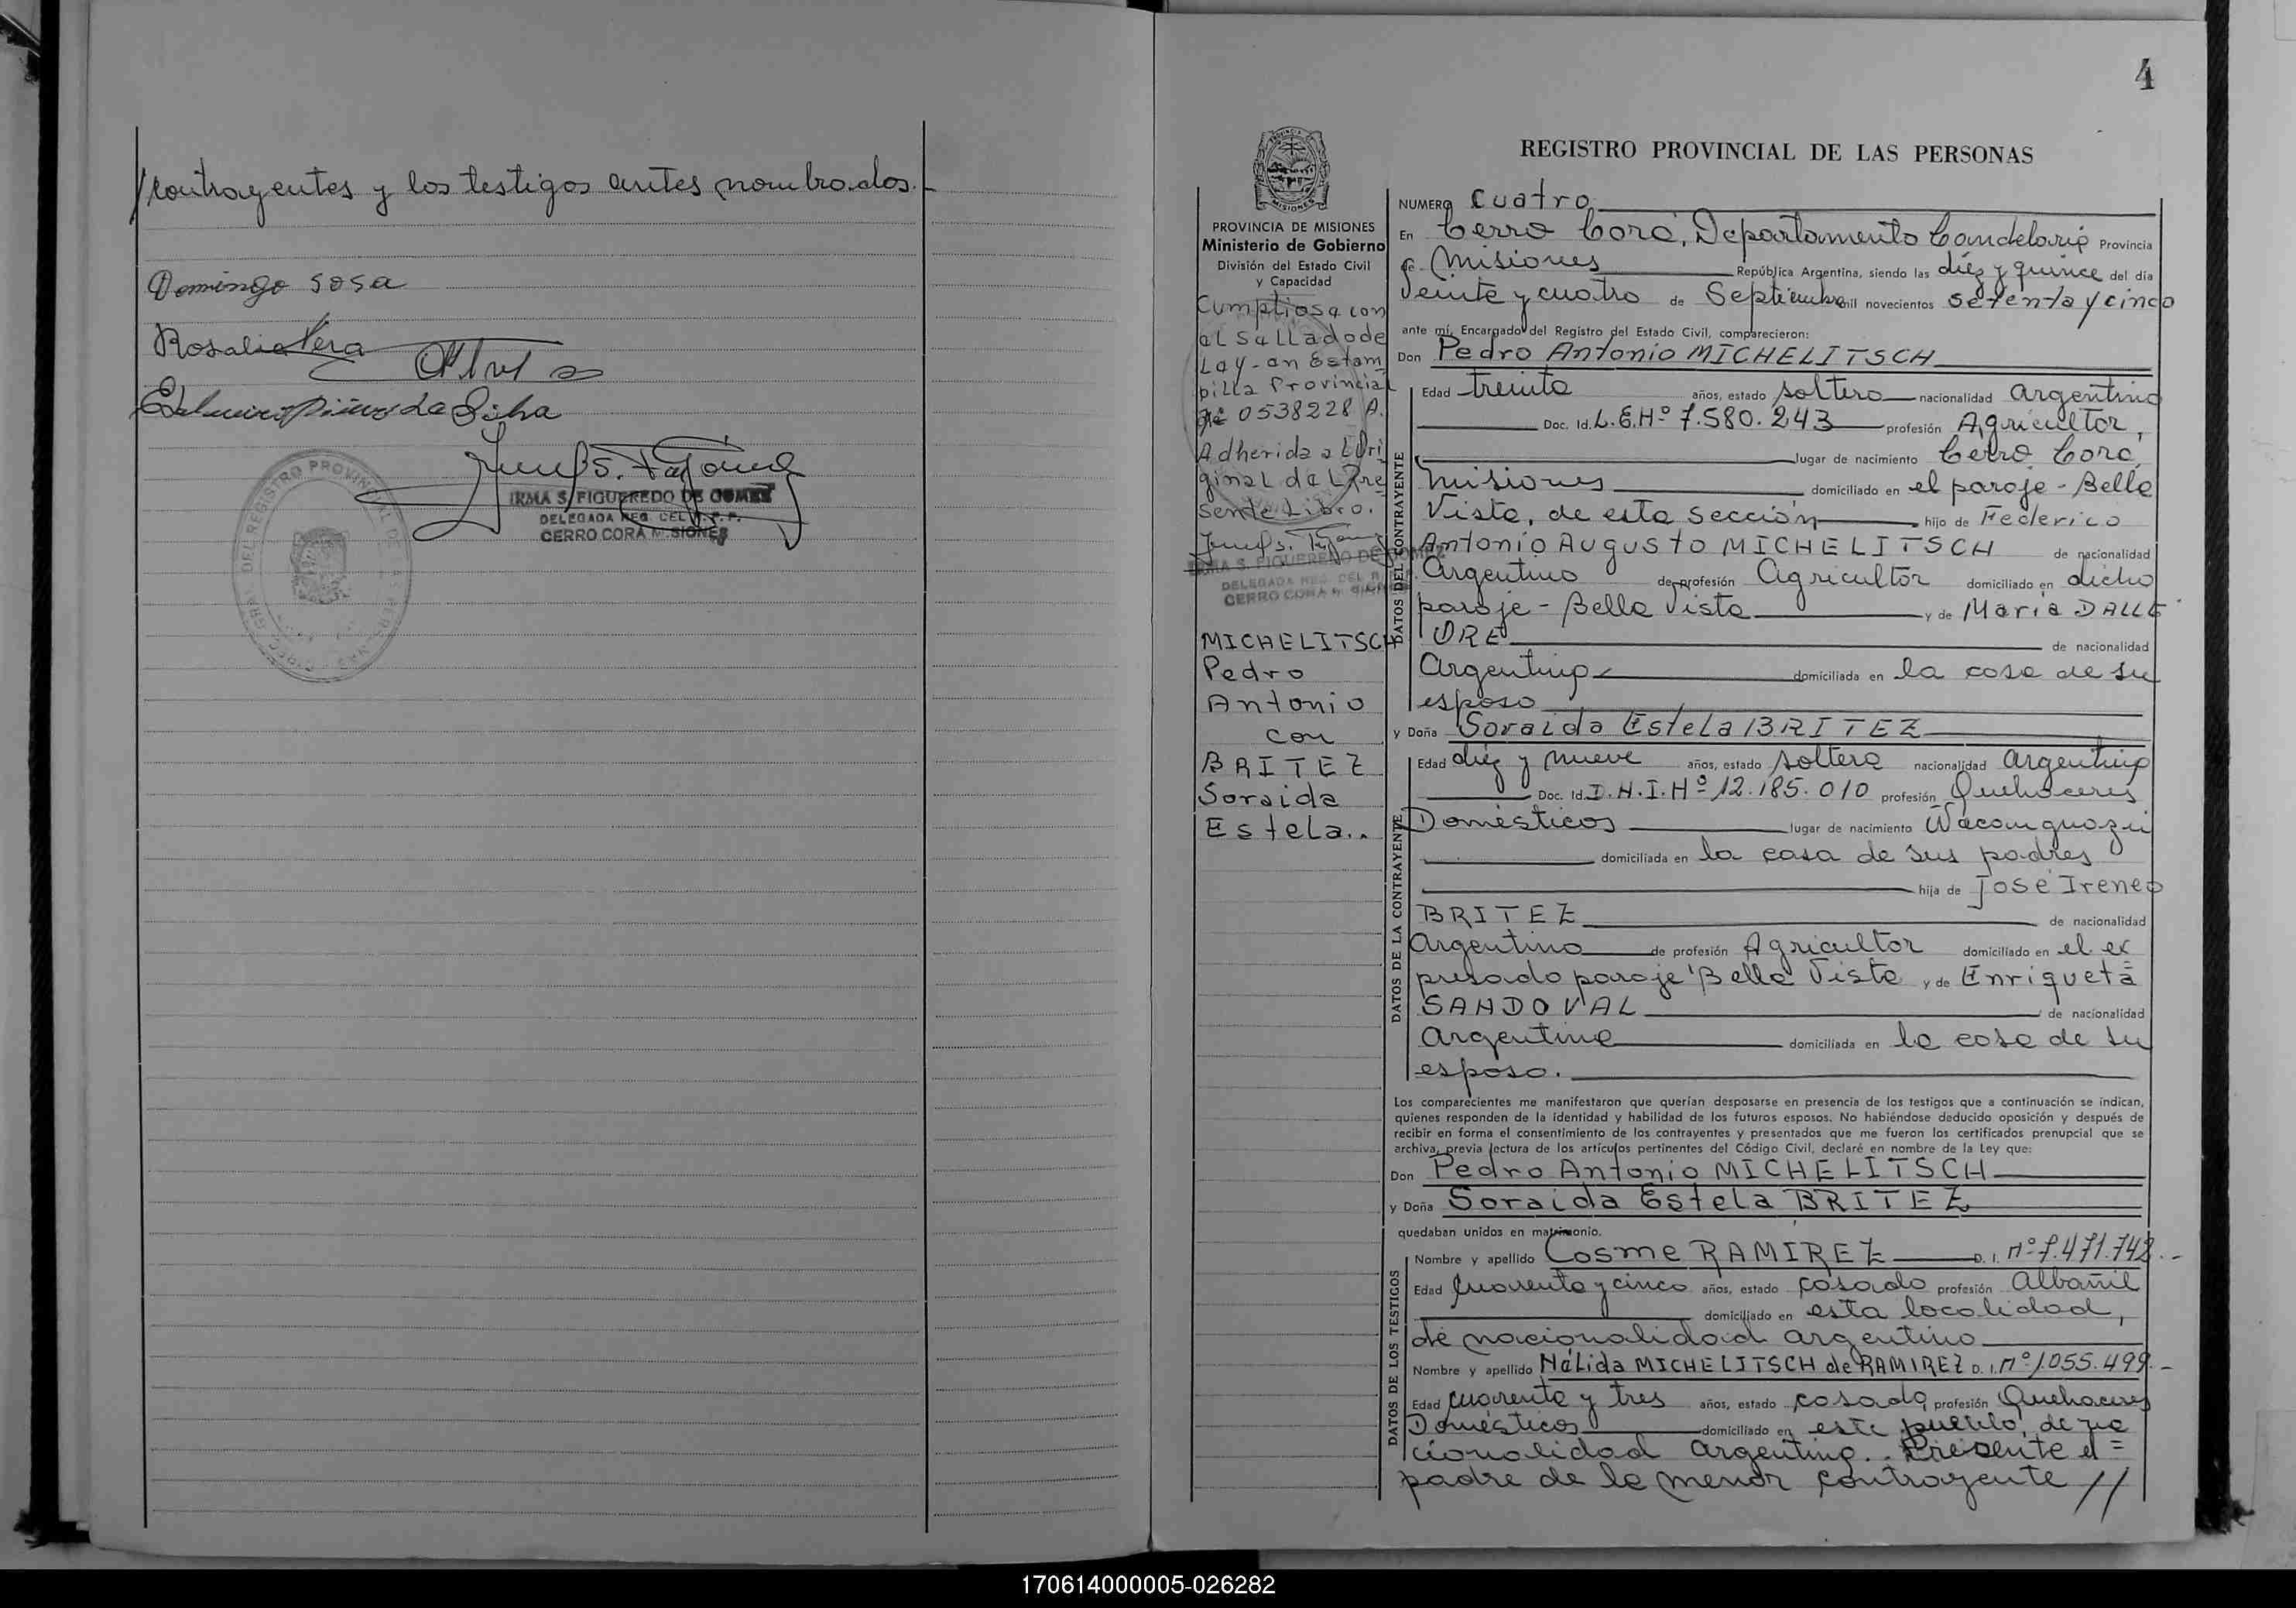 contrayentes y los testigos antes nombrados.
Domingo Sosa
Rosalia Vera
IRMA S. FIGUEREDO DE GOMEZ
DELEGADA REG. DEL R. P. P.
CERRO CORA MISIONES
4
REGISTRO PROVINCIAL DE LAS PERSONAS
PROVINCIA DE MISIONES
Ministerio de Gobierno
División del Estado Civil
y Capacidad
Cumpliosa con
el Sallado de
Ley-en Estam
pilla Provincial
0538228 A.
Adherida al Ori
ginal del Pre
sente Libro.
IRMA S. FIGUEREDO DE GOMEZ
DELEGADA REG. DEL R
CERRO CORA
MICHELITSCH
Pedro
Antonio
con
BRITEZ
Soraida
Estela..
NUMERO cuatro
En Cerro Corá, Departamento Candelaria Provincia
de Misiones República Argentina, siendo las diéz y quince del día
Veinte y cuatro de Septiembre mil novecientos setenta y cinco
ante mí, Encargado del Registro del Estado Civil, comparecieron:
Don Pedro Antonio MICHELITSCH
DATOS DEL CONTRAYENTE
Edad treinta años, estado soltero nacionalidad argentino
Doc. Id. L.E.Nº 7.580.243 profesión Agricultor,
lugar de nacimiento Cerro Corá
Misiones domiciliado en el paraje-Bella
Vista, de esta sección hijo de Federico
Antonio Augusto MICHELITSCH de nacionalidad
Argentino de profesión Agricultor domiciliado en dicho
paraje-Bella Vista y de María DALLE
ORE de nacionalidad
Argentina domiciliada en la casa de su
esposo
y Doña Soraida Estela BRITEZ
DATOS DE LA CONTRAYENTE
Edad diéz y nueve años, estado soltera nacionalidad argentina
Doc. Id. D.N.I.Nº 12.185.010 profesión Quehaceres
Domésticos lugar de nacimiento
domiciliada en la casa de sus padres
hija de José Ireneo
BRITEZ de nacionalidad
Argentino de profesión Agricultor domiciliado en el ex
presado paraje Bella Vista y de Enriqueta
SANDOVAL de nacionalidad
Argentina domiciliada en la casa de su
esposo.
Los comparecientes me manifestaron que querían desposarse en presencia de los testigos que a continuación se indican,
quienes responden de la identidad y habilidad de los futuros esposos. No habiéndose deducido oposición y después de
recibir en forma el consentimiento de los contrayentes y presentados que me fueron los certificados prenupcial que se
archiva, previa lectura de los artículos pertinentes del Código Civil, declaré en nombre de la Ley que:
Don Pedro Antonio MICHELITSCH
y Doña Soraida Estela BRITEZ
quedaban unidos en matrimonio.
DATOS DE LOS TESTIGOS
Nombre y apellido Cosme RAMIREZ D. I. Nº 7.471.742.-
Edad Cuarenta y cinco años, estado casado profesión Albañil
domiciliado en esta localidad,
de nacionalidad argentino
Nombre y apellido Nélida MICHELITSCH de RAMIREZ D. I. Nº 1.055.499.-
Edad cuarenta y tres años, estado casada profesión Quehaceres
Domésticos domiciliado en este pueblo, de na
cionalidad argentina.. Presente el =
padre de la menor contrayente //
170614000005-026282